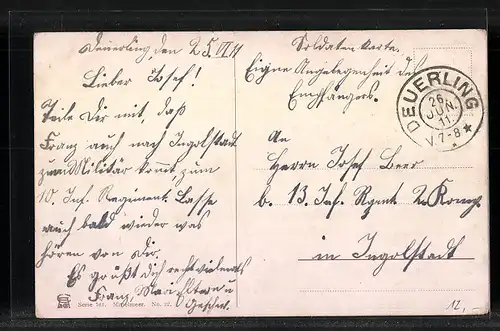 Deuerling, den 25. VI. 11
Lieber Josef!
Teile Dir mit, daß
Franz auch nach Ingolstadt
zum Militär kommt, zum
10. Inf. Regiment. Lasse
auch bald wieder was
hören von Dir.
Es grüßt Dich recht vielmals
Franz, Marie, Eltern u
Geschw.
Serie 161. Mittelmeer. No.
Soldaten Karte.
Eigne Angelegenheit des
Empfängers.
DEUERLING
26
JUN.
11
V.7-8
An
Herrn Josef Beer
b. 13. Inf. Rgmt 2. Komp.
in Ingolstadt
12,-